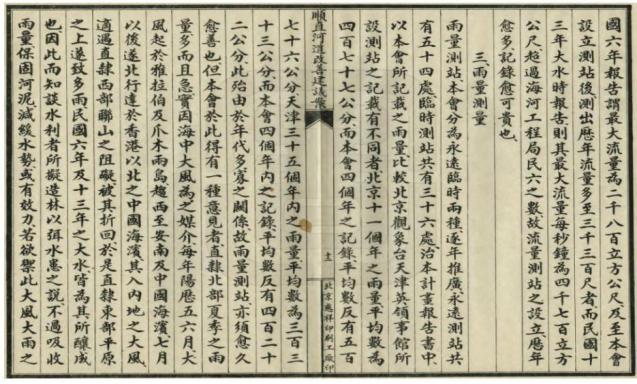 國六年報告謂最大流量為二千八百立方公尺及至本會
設立測站後測出歷年流量多至三千三百尺者而民國十
三年大水時報告則其最大流量每秒鐘為四千七百立方
公尺超過海河工程局民六之數故流量測站之設立歷年
愈多記錄愈可貴也
三、雨量測量
雨量測站本會分為永遠臨時兩種逐年推廣永遠測站共
有五十四處臨時測站共有三十六處治本計畫報告書中
以本會所記載之雨量比較北京觀象台天津英領事館所
設測站之記載有不同者北京十一個年之雨量平均數為
四百七十七公分而本會四個年之記錄平均數反有五百
順直河道改善建議案
十二
北京慈祥印刷工廠印
七十六公分天津三十五個年內之雨量平均數為三百三
十三公分而本會四個年內之記錄平均數反有四百二十
二公分此殆由於年代多寡之關係故雨量測站亦須愈久
愈善也但本會於此得有一種意見者直隸北部夏季之雨
量多而且急實因海中大風為之媒介每年陽歷五六月大
風起於雅拉伯及爪木兩島趨西至安南及中國海濱七月
以後遂北行達於香港以北之中國海濱其入內地之大風
適遇直隸西部聯山之阻礙被其折回於是直隸東部平原
之上遂致多雨民國六年及十三年之大水皆為其所釀成
也因此而知談水利者所擬造林以弭水患之說不過吸收
雨量保固河泥減緩水勢或有效力若欲禦此大風大雨之